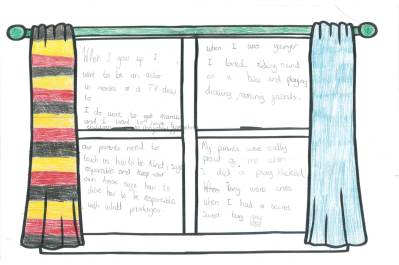 When I grow up I
want to be an actor
in movies or a TV
to
I do want to get married
and I want to have
when I was younger
I loved riding round
on a bike and playing
drawing, making friends.
our parents need to
teach us how to be kind, safe
responsible and keep our
own house safe how to
also how to be responsible
with adult privileges.
My parents were really
proud of me when
I did a play
They were cross
when I had a secret
Sweet bag